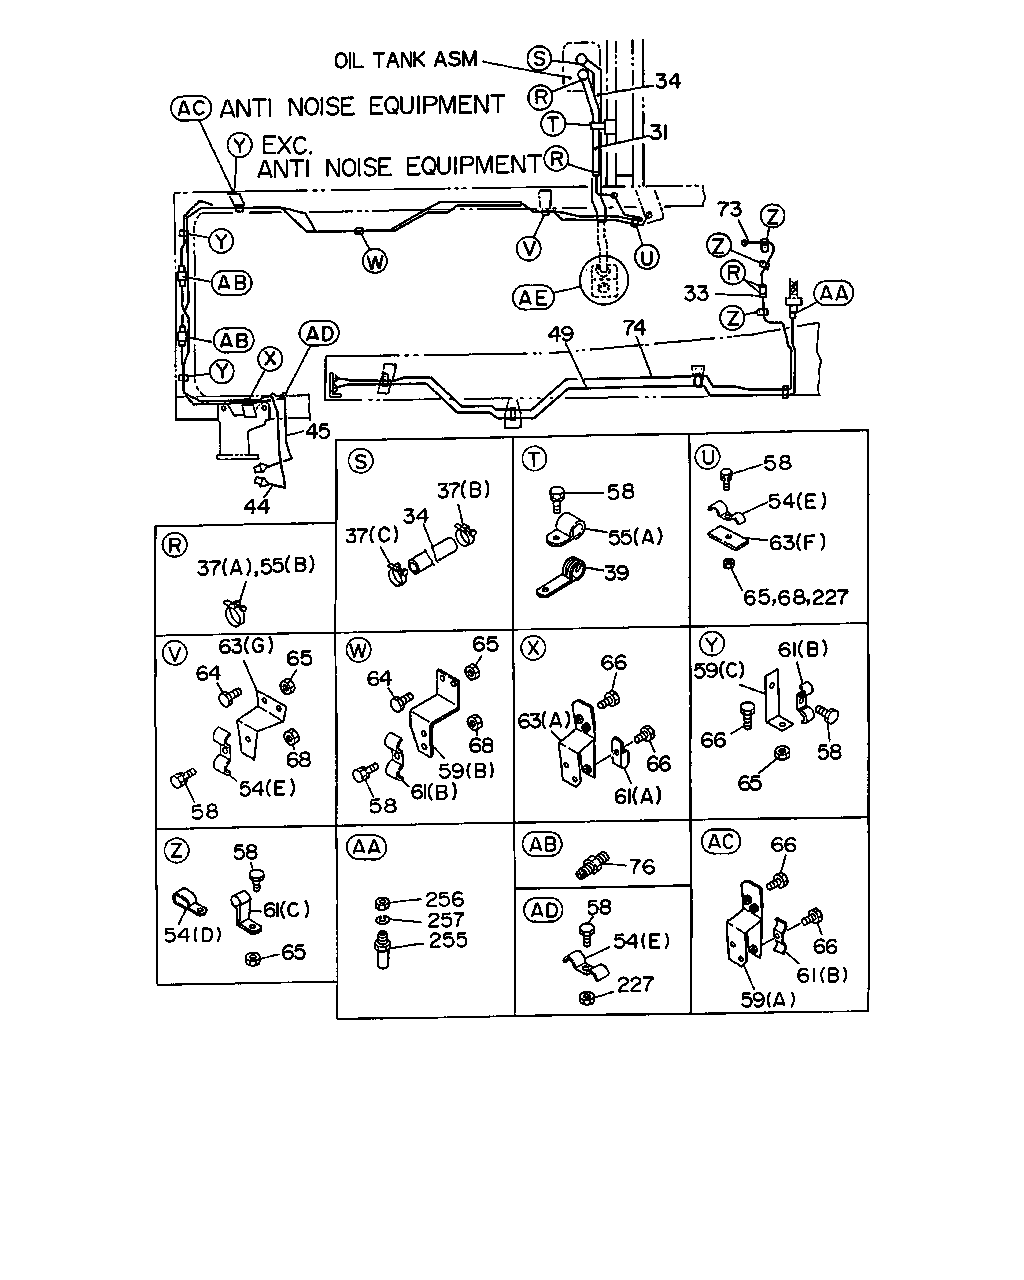 OIL TANK ASM
S
34
R
AC ANTI NOISE EQUIPMENT
T
31
Y EXC.
ANTI NOISE EQUIPMENT R
73
Z
Y
V
U
Z
W
R
AB
AE
33
AA
Z
AB
AD
49
74
X
Y
45
44
S
37(B)
34
37(C)
T
58
55(A)
39
U
58
54(E)
63(F)
65,68,227
R
37(A),55(B)
V
63(G)
65
64
68
54(E)
58
W
65
64
68
59(B)
61(B)
58
X
66
63(A)
66
61(A)
Y
61(B)
59(C)
66
58
65
Z
58
61(C)
54(D)
65
AA
256
257
255
AB
76
AD
58
54(E)
227
AC
66
66
61(B)
59(A)